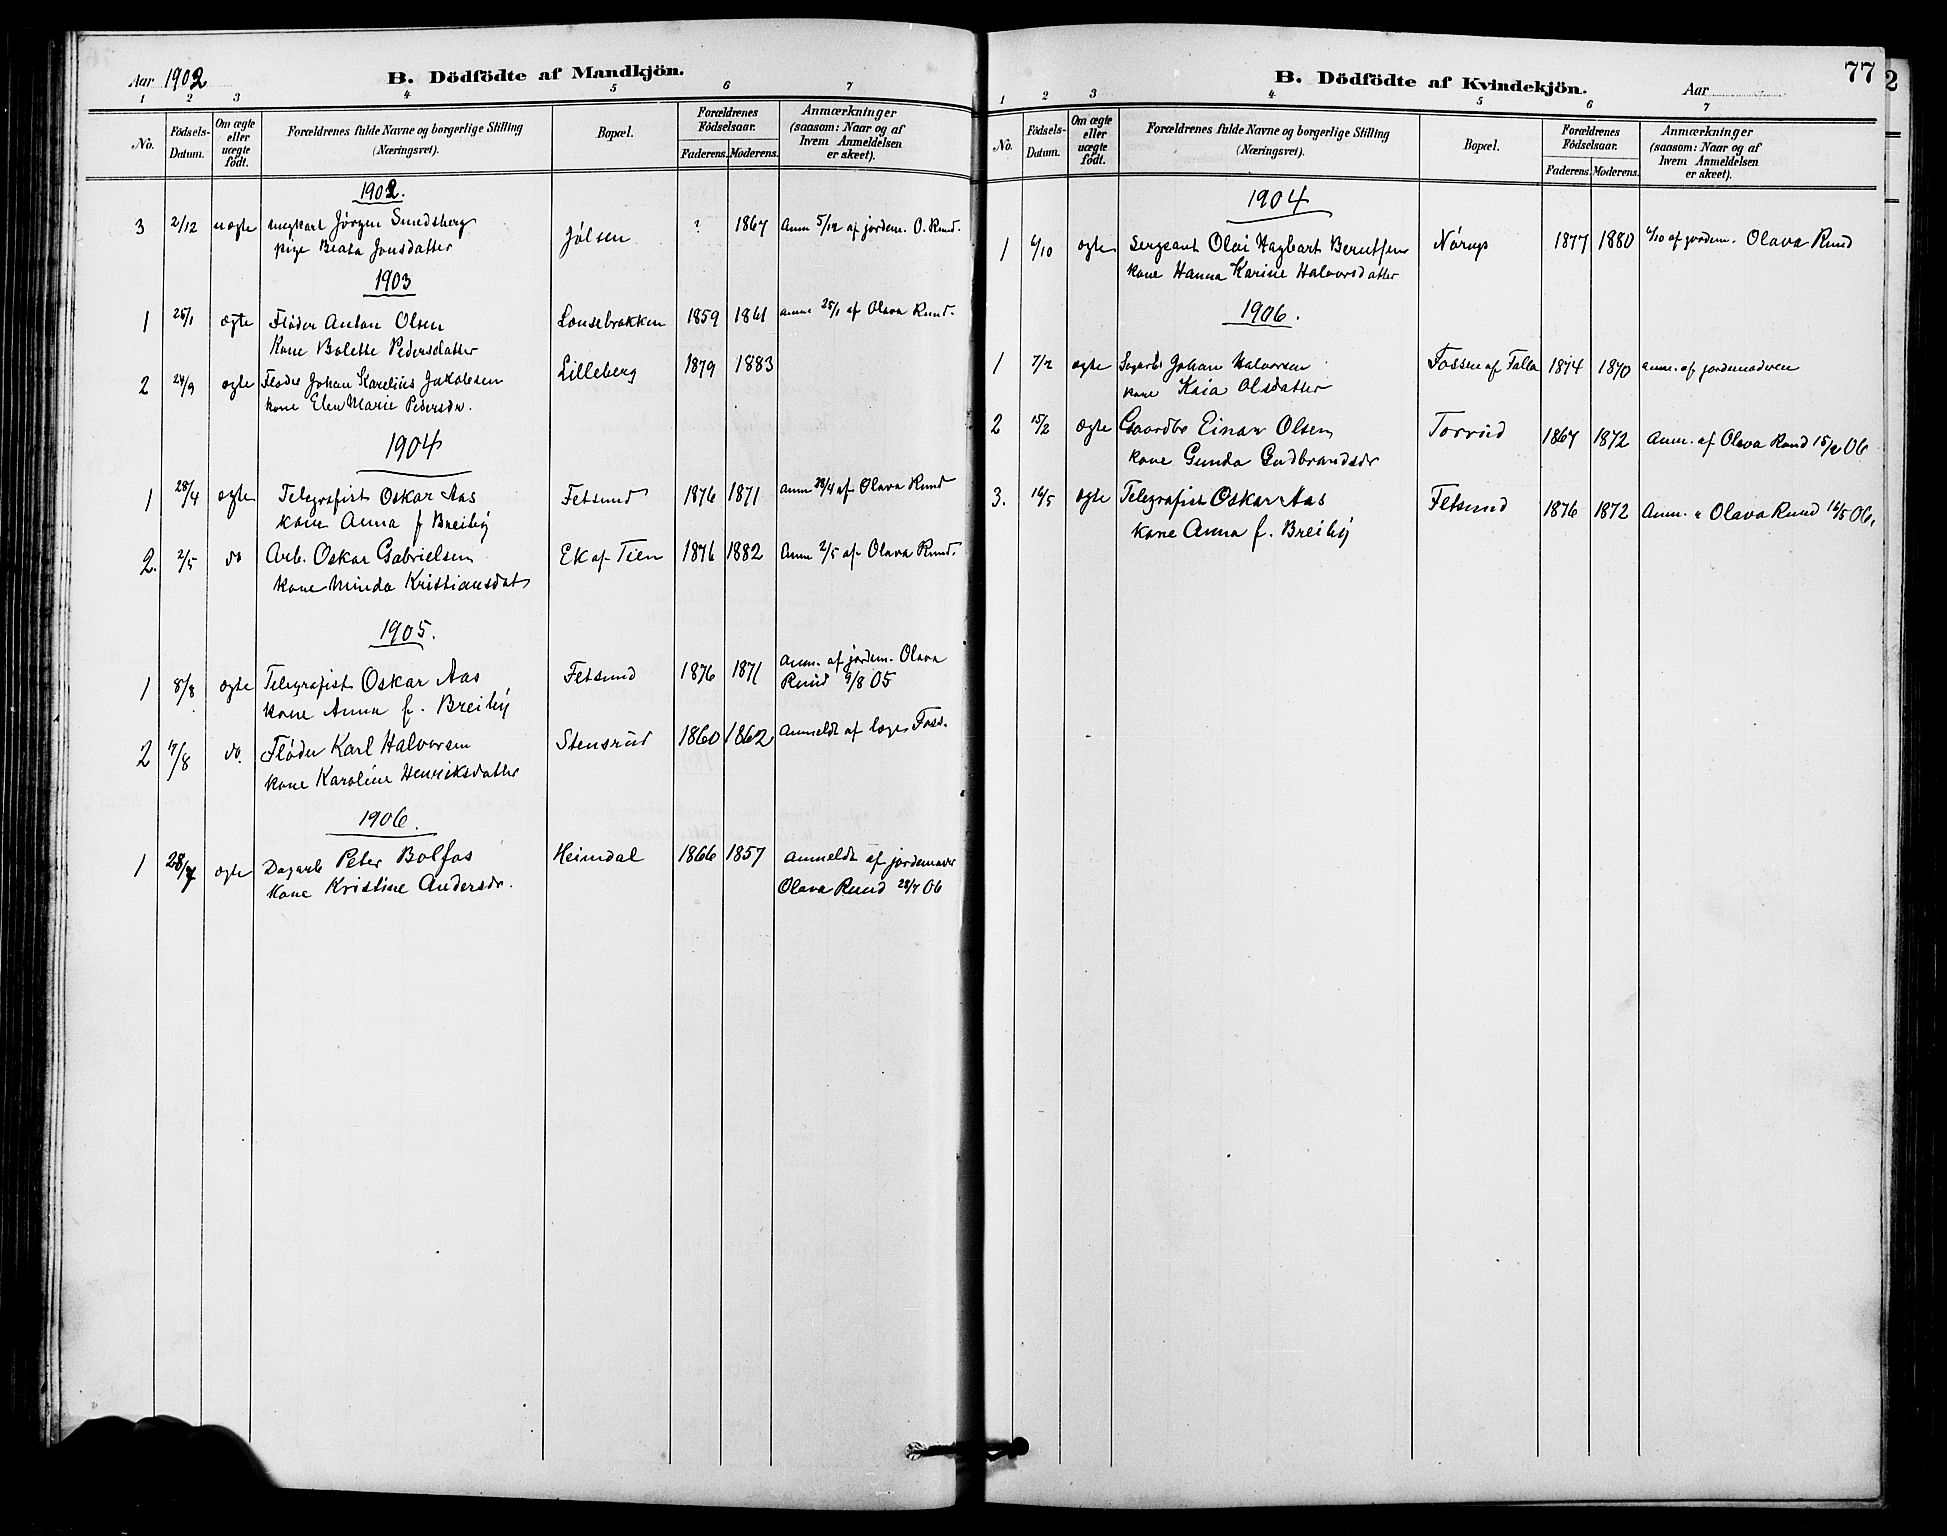 Aar 1902 B. Dödfödte af Mandkjön.
1 2 3 4 5 6 7
No. Födsels-Datum. Om ægte eller uægte født. Forældrenes fulde Navne og borgerlige Stilling (Næringsvei). Bopæl. Forældrenes Födselsaar. Faderens. Moderens. Anmærkninger (saasom: Naar og af hvem Anmeldelsen er skeet).
1902.
3 2/12 uægte ungkarl Jørgen Smedsberg Jølsen ? 1867 Anm 5/12 af jordem. O. Rund.
pige Beata Jonsdatter
1903
1 25/1 ægte Fløder Anton Olsen Lonsebrakken 1859 1861 anm 25/1 af Olava Rund.
Kone Bolette Pedersdatter
2 24/9 ægte Fløder Johan Karelius Jakobsen Lilleberg 1879 1883
kone Elen Marie Pedersdr.
1904
1 28/4 ægte Telegrafist Oskar Aas Fetsund 1876 1871 Anm 28/4 af Olava Rund
kone Anna f Breiby
2. 2/5 do Arb. Oskar Gabrielsen Ek af Tien 1876 1882 Anm 2/5 af Olava Rund.
kone Minda Kristiansdat
1905.
1 8/8 ægte Telegrafist Oskar Aas Fetsund 1876 1871 Anm. af jordem. Olava
kone Anna f. Breiby Rund 9/8 05
2 17/8 do. Fløder Karl Halvorsen Stensrud 1860 1862 Anmeldt af læge Foss.
kone Karoline Henriksdatter
1906.
1 28/7 ægte Dagarb Peter Bolfos Heimdal 1866 1857 Anmeldt af jordemoder
kone Kristine Andersdr. Olava Rund 28/7 06
B. Dödfödte af Kvindekjön. Aar 77
1 2 3 4 5 6 7
No. Födsels-Datum. Om ægte eller uægte födt. Forældrenes fulde Navne og borgerlige Stilling (Næringsvei). Bopæl. Forældrenes Födselsaar. Faderens. Moderens. Anmærkninger (saasom: Naar og af hvem Anmeldelsen er skeet).
1904
1 6/10 ægte Sergeant Olai Hagbart Berntsen Nørup 1877 1880 6/10 af jordem. Olava Rund
kone Hanna Karine Halvorsdatter
1906.
1 7/2 ægte Sagarb Johan Halvorsen Fossen af Falla 1874 1870 anm. af jordemoderen
kone Kaia Olsdatter
2 15/2 ægte Gaardbr Einar Olsen Torrud 1867 1872 Anm. af Olava Rund 15/2 06
kone Gunda Gudbrandsdr
3. 16/5 ægte Telegrafist Oskar Aas Fetsund 1876 1872 Anm. a Olava Rund 16/5 06.
kone Anna f. Breiby
2